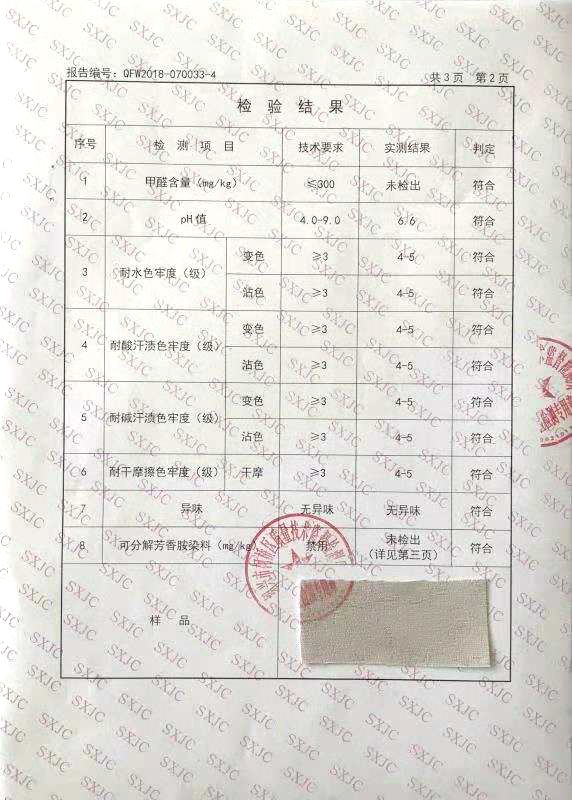 报告编号：QFW2018-070033-4 共3页 第2页
检验结果
序号 检测项目 技术要求 实测结果 判定
1 甲醛含量（mg/kg） ≤300 未检出 符合
2 pH值 4.0-9.0 6.6 符合
3 耐水色牢度（级） 变色 ≥3 4-5 符合
沾色 ≥3 4-5 符合
4 耐酸汗渍色牢度（级） 变色 ≥3 4-5 符合
沾色 ≥3 4-5 符合
5 耐碱汗渍色牢度（级） 变色 ≥3 4-5 符合
沾色 ≥3 4-5 符合
6 耐干摩擦色牢度（级） 干摩 ≥3 4-5 符合
7 异味 无异味 无异味 符合
8 可分解芳香胺染料（mg/kg） 禁用 未检出
（详见第三页） 符合
样品
SXJC